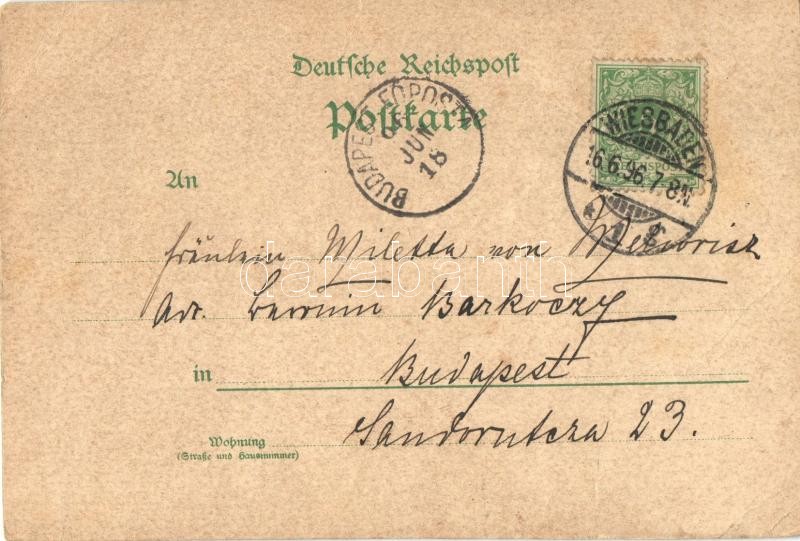 Deutsche Reichspost
Postkarte
BUDAPEST FŐPOSTA
JUN
18
WIESBADEN
16.6.96.7-8N.
An
Fräulein Miletta von
Adr. Baronin Barkoczy
in Budapest
Sandorutcza 23.
Wohnung
(Straße und Hausnummer)
darabanth